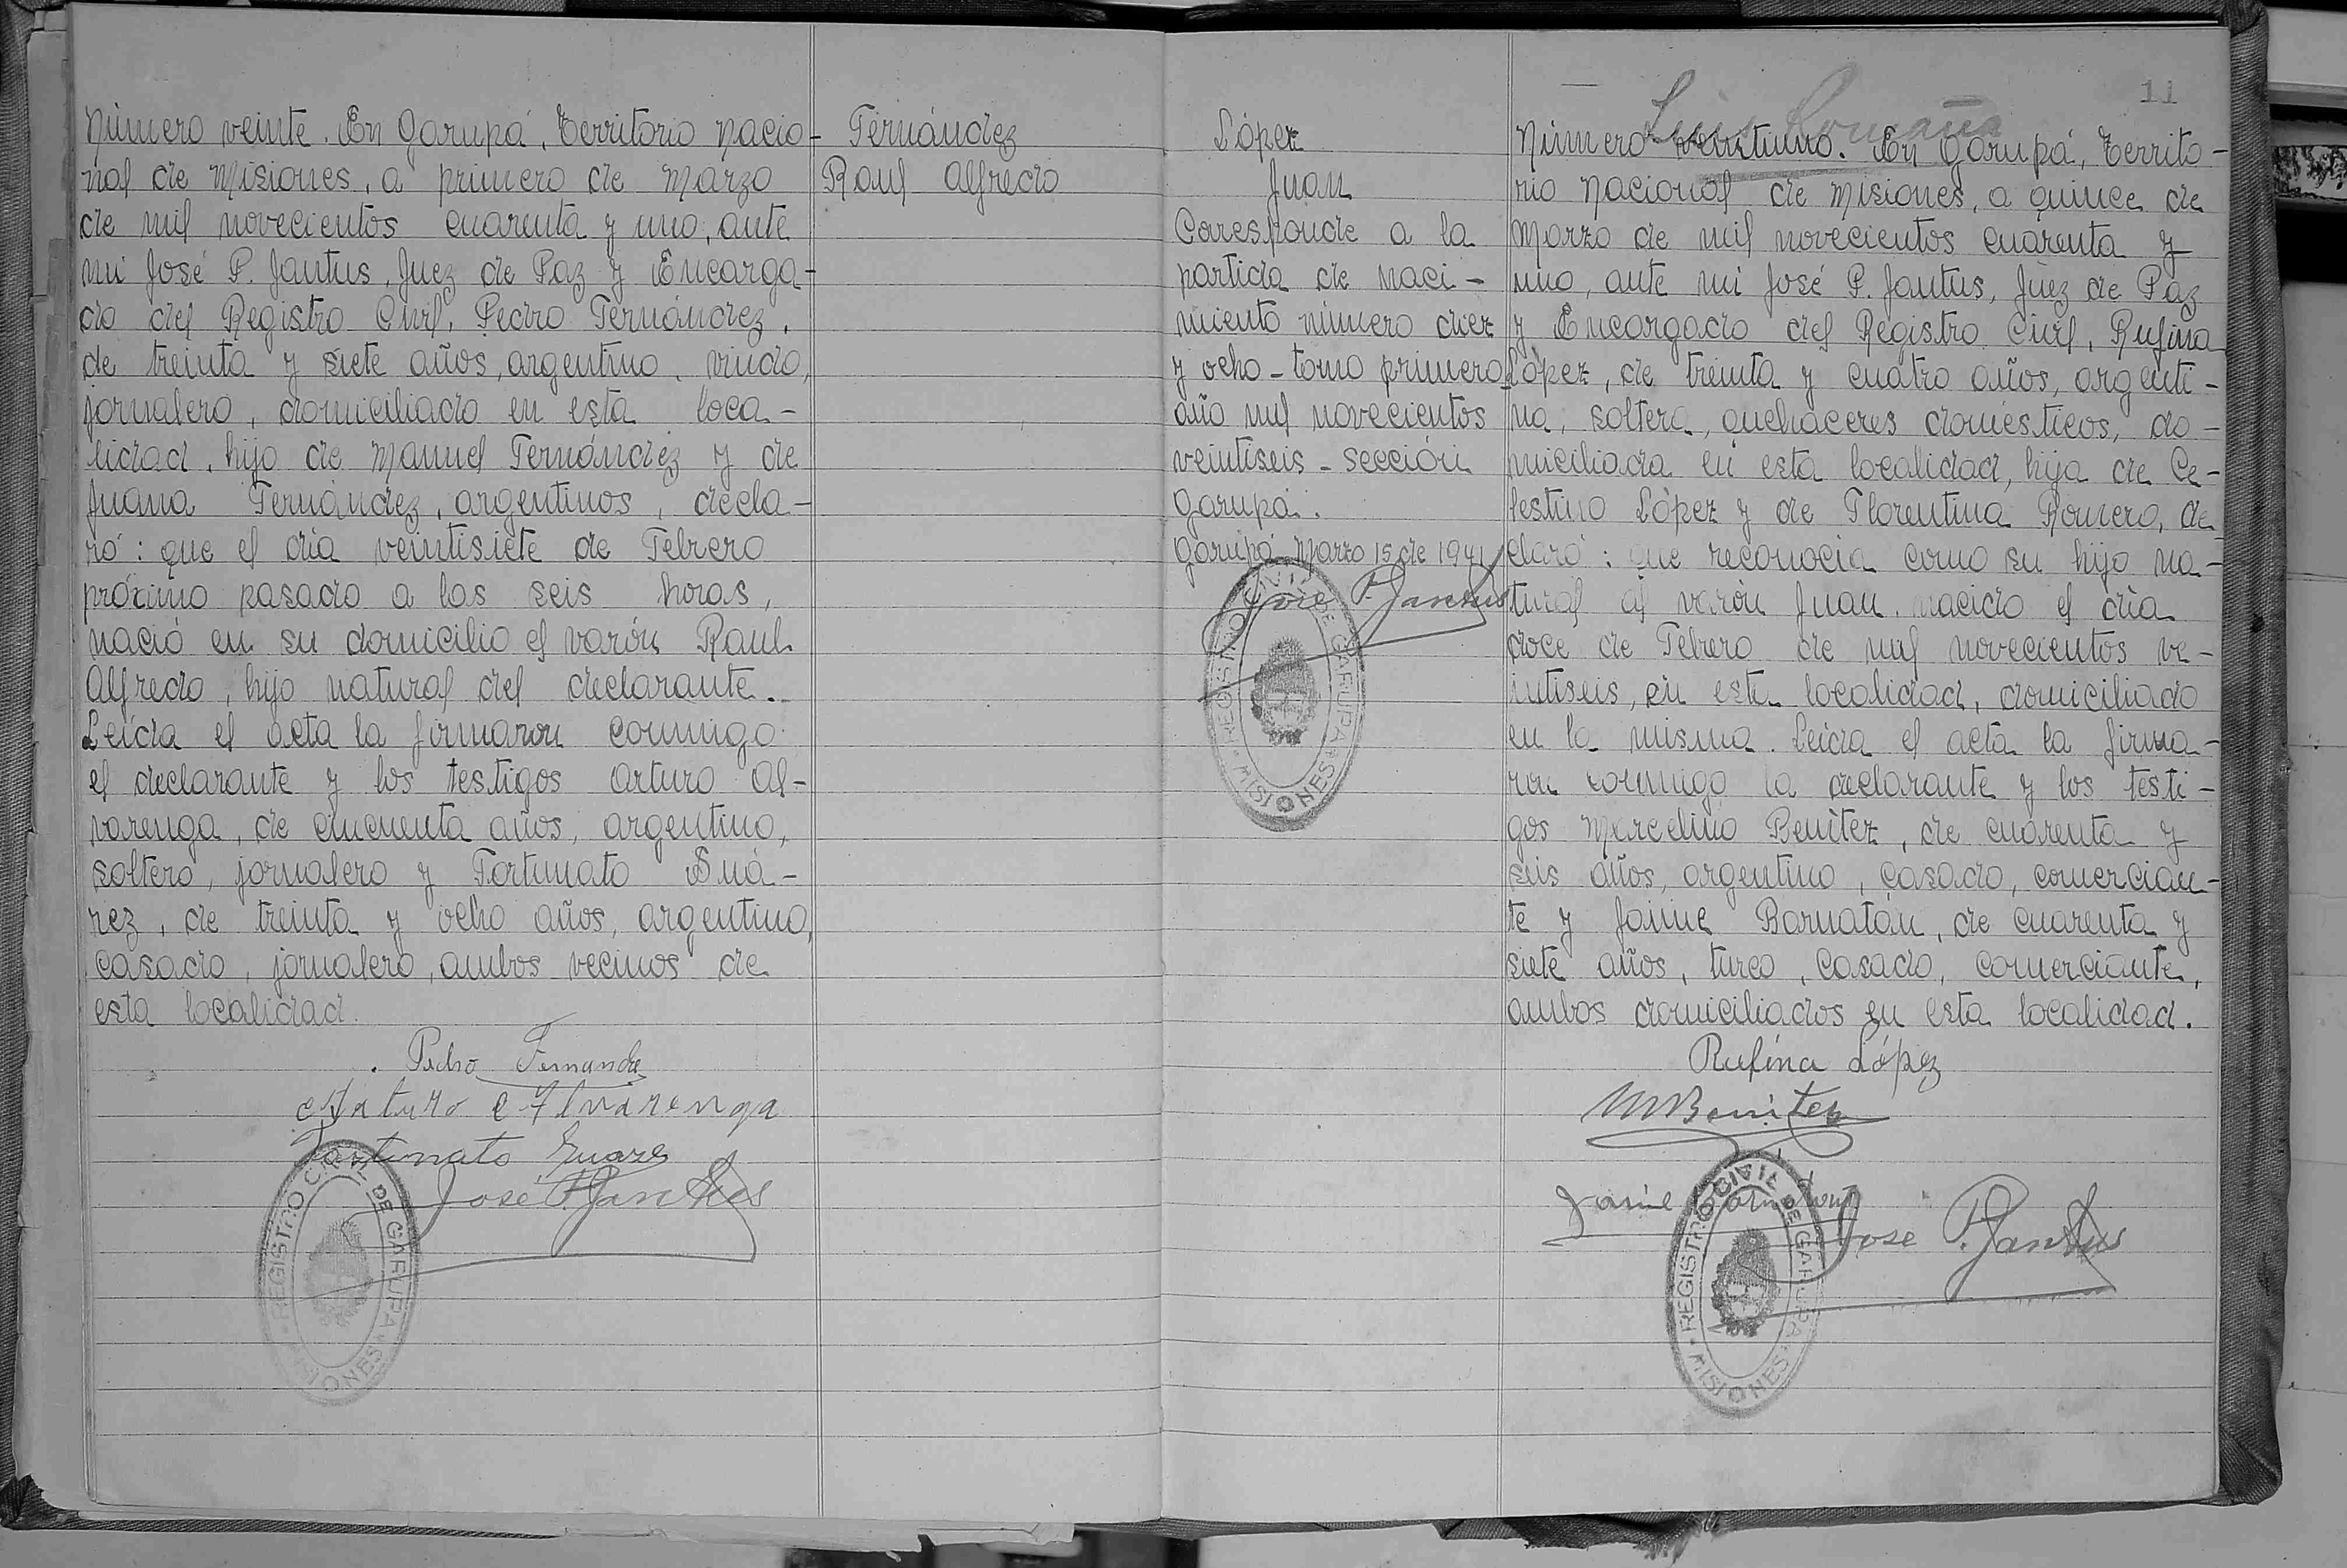 Número veinte. En Garupá, Territorio nacio-
nal de Misiones, a primero de Marzo
de mil novecientos cuarenta y uno, ante
mi José P. Jantus, Juez de Paz y Encarga-
do del Registro Civil, Pedro Fernández,
de treinta y siete años, argentino, viudo,
jornalero, domiciliado en esta loca-
lidad, hijo de Manuel Fernández y de
Juana Fernández, argentinos, decla-
ró: que el día veintisiete de Febrero
próximo pasado a las seis horas,
nació en su domicilio el varón Raul
Alfredo, hijo natural del declarante.
Leída el acta la firmaron conmigo
el declarante y los testigos Arturo Al-
varenga, de cincuenta años, argentino,
soltero, jornalero y Fortunato Suá-
rez, de treinta y ocho años, argentino,
casado, jornalero, ambos vecinos de
esta localidad.
Pedro Fernande
Arturo Alvarenga
Fortunato Suarez
José P. Jantus
REGISTRO CIVIL DE GARUPA
MISIONES
Fernández
Raul Alfredo
López
Juan
Coresponde a la
partida de naci-
miento número diez
y ocho - tomo primero
año mil novecientos
veintiseis - sección
Garupá.
Garupá Marzo 15 de 1941
José P. Jantus
REGISTRO CIVIL DE GARUPA
MISIONES
11
Luis Romaña
Número veintiuno. En Garupá, Territo-
rio Nacional de Misiones, a quince de
Marzo de mil novecientos cuarenta y
uno, ante mi José P. Jantus, Juez de Paz
y Encargado del Registro Civil, Rufina
López, de treinta y cuatro años, argenti-
na, soltera, quehaceres domésticos, do-
miciliada en esta localidad, hija de Ce-
lestino López y de Florentina Romero, de
claró: que reconocía como su hijo na-
tural al varón Juan, nacido el día
doce de Febrero de mil novecientos ve-
intiseis, en esta localidad, domiciliado
en la misma. Leída el acta la firma-
ron conmigo la declarante y los testi-
gos Marcelino Benítez, de cuarenta y
seis años, argentino, casado, comercian-
te y Jaime Barnatán, de cuarenta y
siete años, turco, casado, comerciante,
ambos domiciliados en esta localidad.
Rufina López
M Benitez
Jaime
José P. Jantus
REGISTRO CIVIL DE GARUPA
MISIONES